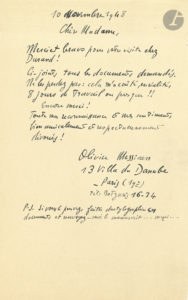 10 Novembre 1948
Chère Madame,
Merci et bravo pour votre visite chez
Durand !
Ci-joint, tous les documents demandés.
Ne les perdez pas : cela m'a coûté
8 jours de travail ou presque !!
Encore merci !
Tout ma reconnaissance et mes sentiments
bien amicalement et respectueusement
dévoués !
Olivier Messiaen
13 Villa du Danube
Paris (19e)
Botzaris 16-74
P.S. Si vous le pouvez, faites
documents et le manuscrit